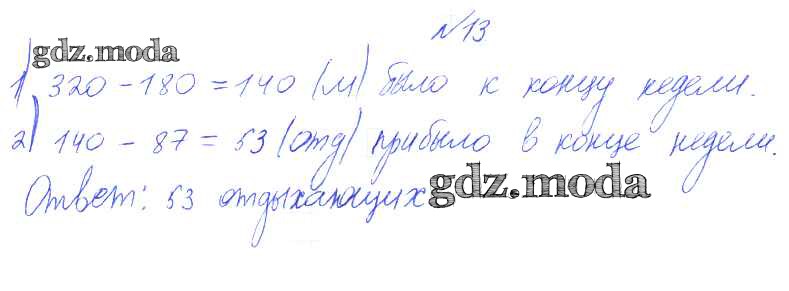 №13
gdz.moda
1) 320 - 180 = 140 (м) было к концу недели.
2) 140 - 87 = 53 (отд) прибыло в конце недели.
Ответ: 53 отдыхающих
gdz.moda